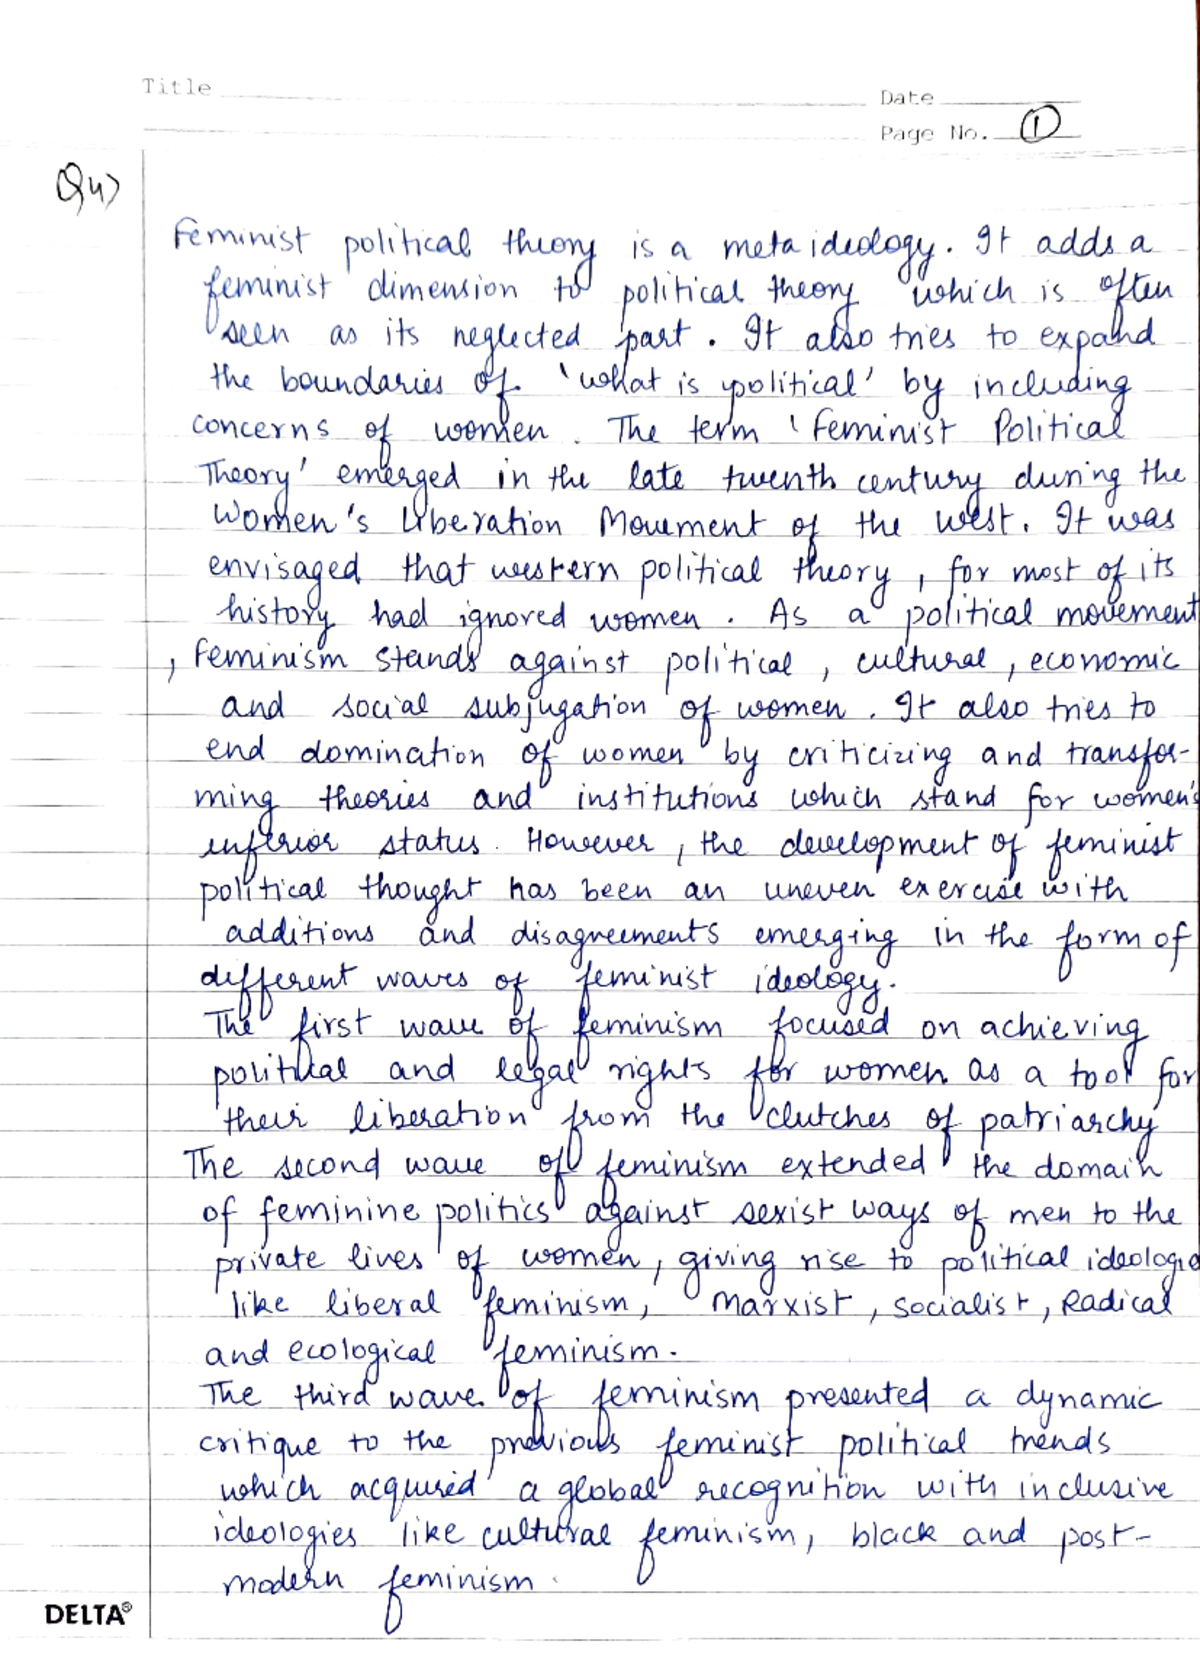 Title
Date
Page No. 1
Q4)
Feminist political theory is a meta ideology. It adds a
feminist dimension to political theory which is often
seen as its neglected part. It also tries to expand
the boundaries of 'what is political' by including
concerns of women. The term 'Feminist Political
Theory' emerged in the late twenth century during the
Women's Liberation Movement of the west. It was
envisaged that western political theory, for most of its
history had ignored women. As a political movement
, feminism stands against political, cultural, economic
and social subjugation of women. It also tries to
end domination of women by criticizing and transfor-
ming theories and institutions which stand for women's
inferior status. However, the development of feminist
political thought has been an uneven exercise with
additions and disagreements emerging in the form of
different waves of feminist ideology.
The first wave of feminism focused on achieving
political and legal rights for women as a tool for
their liberation from the clutches of patriarchy
The second wave of feminism extended the domain
of feminine politics against sexist ways of men to the
private lives of women, giving rise to political ideologie
like liberal feminism, Marxist, socialist, Radical
and ecological feminism.
The third wave of feminism presented a dynamic
critique to the previous feminist political trends
which acquired a global recognition with inclusive
ideologies like cultural feminism, black and post-
modern feminism.
DELTA®